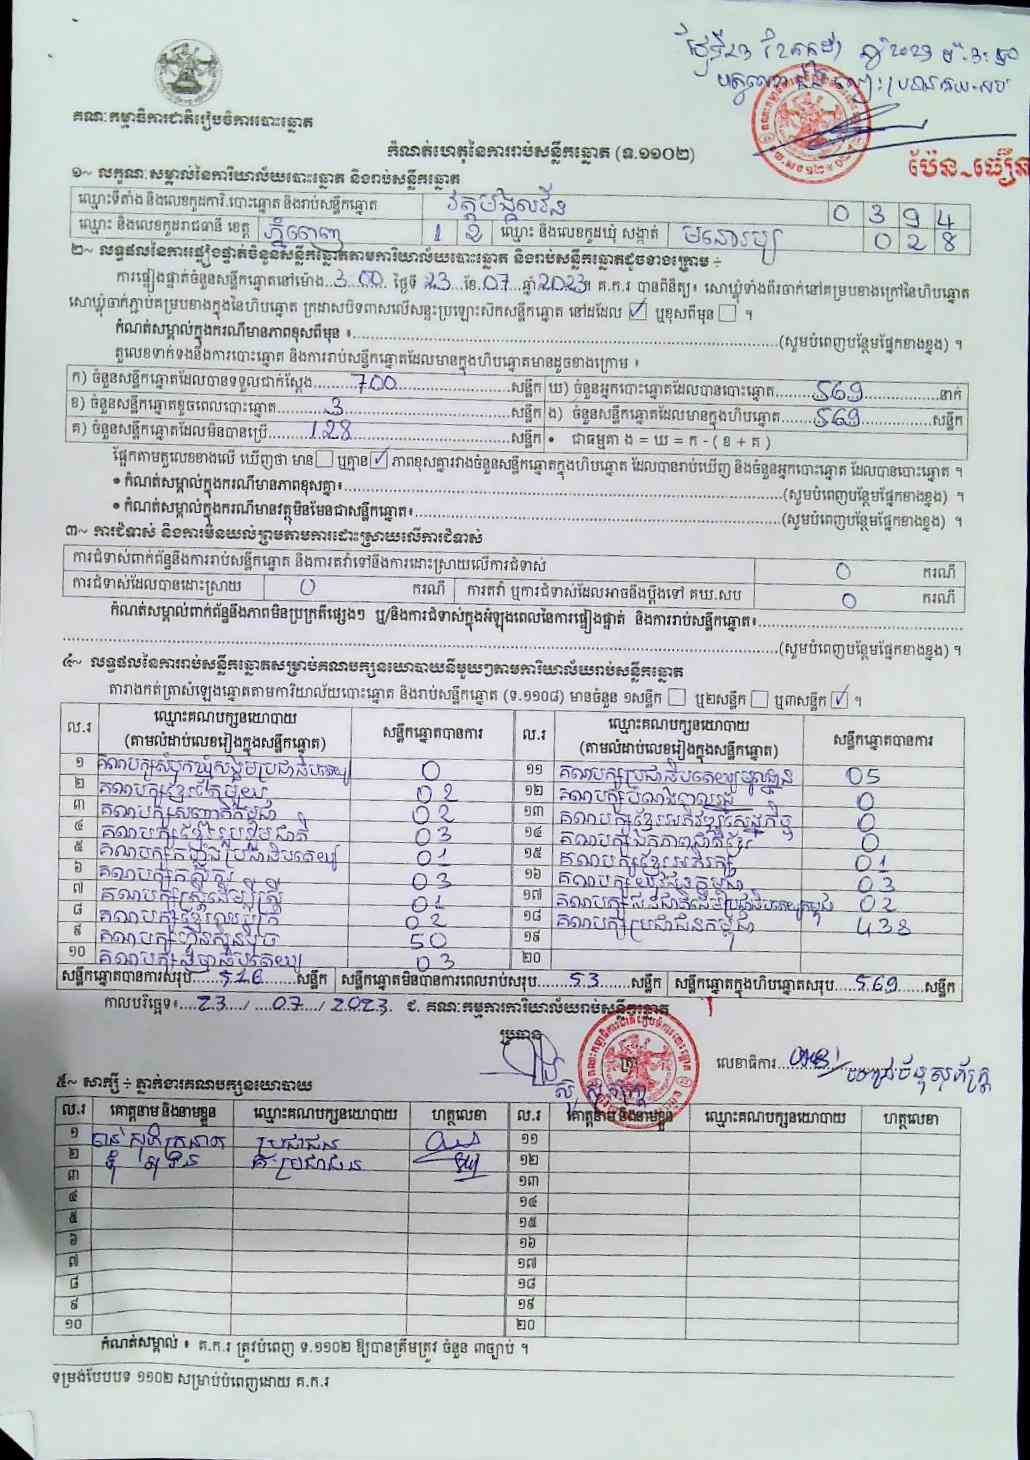 គណៈកម្មាធិការជាតិរៀបចំការបោះឆ្នោត
កំណត់ហេតុនៃការរាប់សន្លឹកឆ្នោត (ទ.១១០២)
ប៉ែន-ធឿន
១~ លក្ខណៈសម្គាល់នៃការិយាល័យបោះឆ្នោត និងរាប់សន្លឹកឆ្នោត
ឈ្មោះទីតាំង និងលេខកូដការិ.បោះឆ្នោត និងរាប់សន្លឹកឆ្នោត 0 3 9 4
ឈ្មោះ និងលេខកូដរាជធានី ខេត្ត ភ្នំពេញ 1 2 ឈ្មោះ និងលេខកូដឃុំ សង្កាត់ មនោរម្យ 0 2 8
២~ លទ្ធផលនៃការផ្ទៀងផ្ទាត់ចំនួនសន្លឹកឆ្នោតតាមការិយាល័យបោះឆ្នោត និងរាប់សន្លឹកឆ្នោតដូចខាងក្រោម ÷
ការផ្ទៀងផ្ទាត់ចំនួនសន្លឹកឆ្នោតនៅម៉ោង..3.00.. ថ្ងៃទី 23 ខែ.07...ឆ្នាំ2023។ គ.ក.រ បានពិនិត្យ៖ សោឃ្លុំទាំងពីរចាក់នៅគម្របខាងក្រៅនៃហិបឆ្នោត
សោឃ្លុំចាក់ភ្ជាប់គម្របខាងក្នុងនៃហិបឆ្នោត ក្រដាសបិទពាសលើសន្ទះប្រឡោះស៊កសន្លឹកឆ្នោត នៅដដែល ☑ ឬខុសពីមុន ☐ ។
កំណត់សម្គាល់ក្នុងករណីមានភាពខុសពីមុន ៖......(សូមបំពេញបន្ថែមផ្នែកខាងខ្នង) ។
តួលេខទាក់ទងនឹងការបោះឆ្នោត និងការរាប់សន្លឹកឆ្នោតដែលមានក្នុងហិបឆ្នោតមានដូចខាងក្រោម ៖
ក) ចំនួនសន្លឹកឆ្នោតដែលបានទទួលជាក់ស្តែង.....700.....សន្លឹក ឃ) ចំនួនអ្នកបោះឆ្នោតដែលបានបោះឆ្នោត.....569.....នាក់
ខ) ចំនួនសន្លឹកឆ្នោតខូចពេលបោះឆ្នោត.....3.....សន្លឹក ង) ចំនួនសន្លឹកឆ្នោតដែលមានក្នុងហិបឆ្នោត.....569.....សន្លឹក
គ) ចំនួនសន្លឹកឆ្នោតដែលមិនបានប្រើ.....128.....សន្លឹក • ជាធម្មតា ង = ឃ = ក - ( ខ + គ )
ផ្អែកតាមតួលេខខាងលើ ឃើញថា មាន ☐ ឬគ្មាន ☑ ភាពខុសគ្នារវាងចំនួនសន្លឹកឆ្នោតក្នុងហិបឆ្នោត ដែលបានរាប់ឃើញ និងចំនួនអ្នកបោះឆ្នោត ដែលបានបោះឆ្នោត ។
• កំណត់សម្គាល់ក្នុងករណីមានភាពខុសគ្នា៖......(សូមបំពេញបន្ថែមផ្នែកខាងខ្នង) ។
• កំណត់សម្គាល់ក្នុងករណីមានវត្ថុមិនមែនជាសន្លឹកឆ្នោត៖......(សូមបំពេញបន្ថែមផ្នែកខាងខ្នង) ។
៣~ ការជំទាស់ និងការមិនយល់ព្រមតាមការដោះស្រាយលើការជំទាស់
ការជំទាស់ពាក់ព័ន្ធនឹងការរាប់សន្លឹកឆ្នោត និងការតវ៉ាទៅនឹងការដោះស្រាយលើការជំទាស់ 0 ករណី
ការជំទាស់ដែលបានដោះស្រាយ 0 ករណី ការតវ៉ា ឬការជំទាស់ដែលអាចនឹងប្តឹងទៅ គឃ.សប 0 ករណី
កំណត់សម្គាល់ពាក់ព័ន្ធនឹងភាពមិនប្រក្រតីផ្សេងៗ ឬ/និងការជំទាស់ក្នុងអំឡុងពេលនៃការផ្ទៀងផ្ទាត់ និងការរាប់សន្លឹកឆ្នោត៖......
......(សូមបំពេញបន្ថែមផ្នែកខាងខ្នង) ។
៤~ លទ្ធផលនៃការរាប់សន្លឹកឆ្នោតសម្រាប់គណបក្សនយោបាយនីមួយៗតាមការិយាល័យរាប់សន្លឹកឆ្នោត
តារាងកត់ត្រាសំឡេងឆ្នោតតាមការិយាល័យបោះឆ្នោត និងរាប់សន្លឹកឆ្នោត (ទ.១១០៨) មានចំនួន ១សន្លឹក ☐ ឬ២សន្លឹក ☐ ឬ៣សន្លឹក ☑ ។
ល.រ ឈ្មោះគណបក្សនយោបាយ (តាមលំដាប់លេខរៀងក្នុងសន្លឹកឆ្នោត) សន្លឹកឆ្នោតបានការ ល.រ ឈ្មោះគណបក្សនយោបាយ (តាមលំដាប់លេខរៀងក្នុងសន្លឹកឆ្នោត) សន្លឹកឆ្នោតបានការ
១ គណបក្សសំបុកឃ្មុំសង្គមប្រជាធិបតេយ្យ 0 ១១ គណបក្សប្រជាធិបតេយ្យមូលដ្ឋាន 05
២ គណបក្សខ្មែរតែមួយ 02 ១២ គណបក្ស 0
៣ គណបក្សសញ្ជាតិកម្ពុជា 02 ១៣ គណបក្សខ្មែរអភិវឌ្ឍន៍សេដ្ឋកិច្ច 0
៤ គណបក្សខ្មែររួបរួមជាតិ 03 ១៤ គណបក្សឯកភាពជាតិខ្មែរ 0
៥ គណបក្សកម្លាំងប្រជាធិបតេយ្យ 01 ១៥ គណបក្សខ្មែរអភិរក្ស 01
៦ គណបក្សកសិករ 03 ១៦ គណបក្សយុវជនកម្ពុជា 03
៧ គណបក្សស្ត្រីដើម្បីស្ត្រី 01 ១៧ គណបក្សជនជាតិដើមប្រជាធិបតេយ្យកម្ពុជា 02
៨ គណបក្ស 02 ១៨ គណបក្សប្រជាជនកម្ពុជា 438
៩ គណបក្សហ៊្វុនស៊ិនប៉ិច 50 ១៩
១០ គណបក្សធិបតេយ្យ 03 ២០
សន្លឹកឆ្នោតបានការសរុប.....516.....សន្លឹក សន្លឹកឆ្នោតមិនបានការពេលរាប់សរុប.....53.....សន្លឹក សន្លឹកឆ្នោតក្នុងហិបឆ្នោតសរុប.....569.....សន្លឹក
កាលបរិច្ឆេទ៖....23..../...07..../..2023. ជ. គណៈកម្មការការិយាល័យរាប់សន្លឹកឆ្នោត
ប្រធាន លេខាធិការ
៥~ សាក្សី ÷ ភ្នាក់ងារគណបក្សនយោបាយ
ល.រ គោត្តនាម និងនាមខ្លួន ឈ្មោះគណបក្សនយោបាយ ហត្ថលេខា ល.រ គោត្តនាម និងនាមខ្លួន ឈ្មោះគណបក្សនយោបាយ ហត្ថលេខា
១ ប្រជាជន ១១
២ គ.ប្រជាជន ១២
៣ ១៣
៤ ១៤
៥ ១៥
៦ ១៦
៧ ១៧
៨ ១៨
៩ ១៩
១០ ២០
កំណត់សម្គាល់ ៖ គ.ក.រ ត្រូវបំពេញ ទ.១១០២ ឱ្យបានត្រឹមត្រូវ ចំនួន ៣ច្បាប់ ។
ទម្រង់បែបបទ ១១០២ សម្រាប់បំពេញដោយ គ.ក.រ